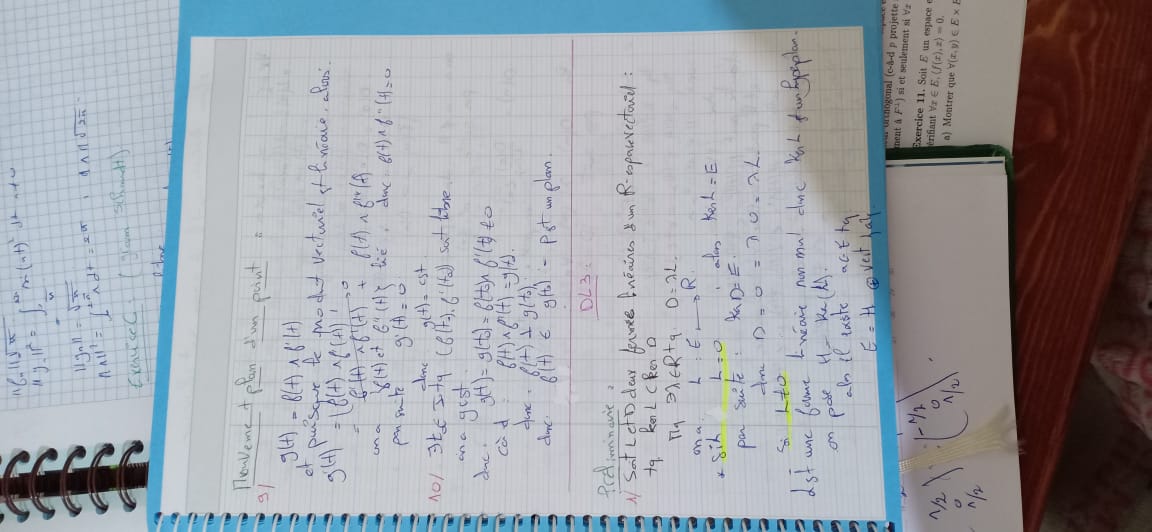 ||gn||² =
||gn|| = √π
||1||² = ∫ 1 dt = 2π
Exercice C : (gram Schmidt)
Mouvement plan d'un point :
9/
g(t) = f(t) ∧ f'(t)
et puisque le produit vectoriel est linéaire, alors:
g'(t) = (f(t) ∧ f'(t))'
= f'(t) ∧ f'(t) → 0 + f(t) ∧ f''(t)
on a {f(t) et f''(t)} lié, donc f(t) ∧ f''(t) = 0
par suite g'(t) = 0
donc g(t) = cst
10/ ∃t₀ ∈ I tq (f(t₀), f'(t₀)) soit libre
on a g cst
donc. g(t) = g(t₀) = f(t₀) ∧ f'(t₀) ≠ 0
càd : f(t) ∧ f'(t) = g(t₀).
donc. f(t) ⊥ g(t₀)
donc. f(t) ∈ g(t₀) = P est un plan.
DL3 :
Préliminaire :
1/ Soit L et D deux formes linéaires d'un R-espace vectoriel :
tq ker L ⊂ ker D
Mq ∃λ ∈ R tq. D = λL.
on a. L : E → R.
* Si L = 0, alors Ker L = E
par suite : Ker D = E.
donc D = 0 = λ 0 = λ L.
- Si L ≠ 0
L est une forme linéaire non nul donc Ker L est un hyperplan.
on pose H = Ker (L).
alors il existe a ∈ E tq
E = H ⊕ vect {a}.
1/2
0
1/2
-1/2
0
1/2
orthogonal (c-à-d p projette
ment à F⊥) si et seulement si ∀x
Exercice 11. Soit E un espace e
érifiant ∀x ∈ E, ⟨f(x), x⟩ = 0.
a) Montrer que ∀(x, y) ∈ E × E